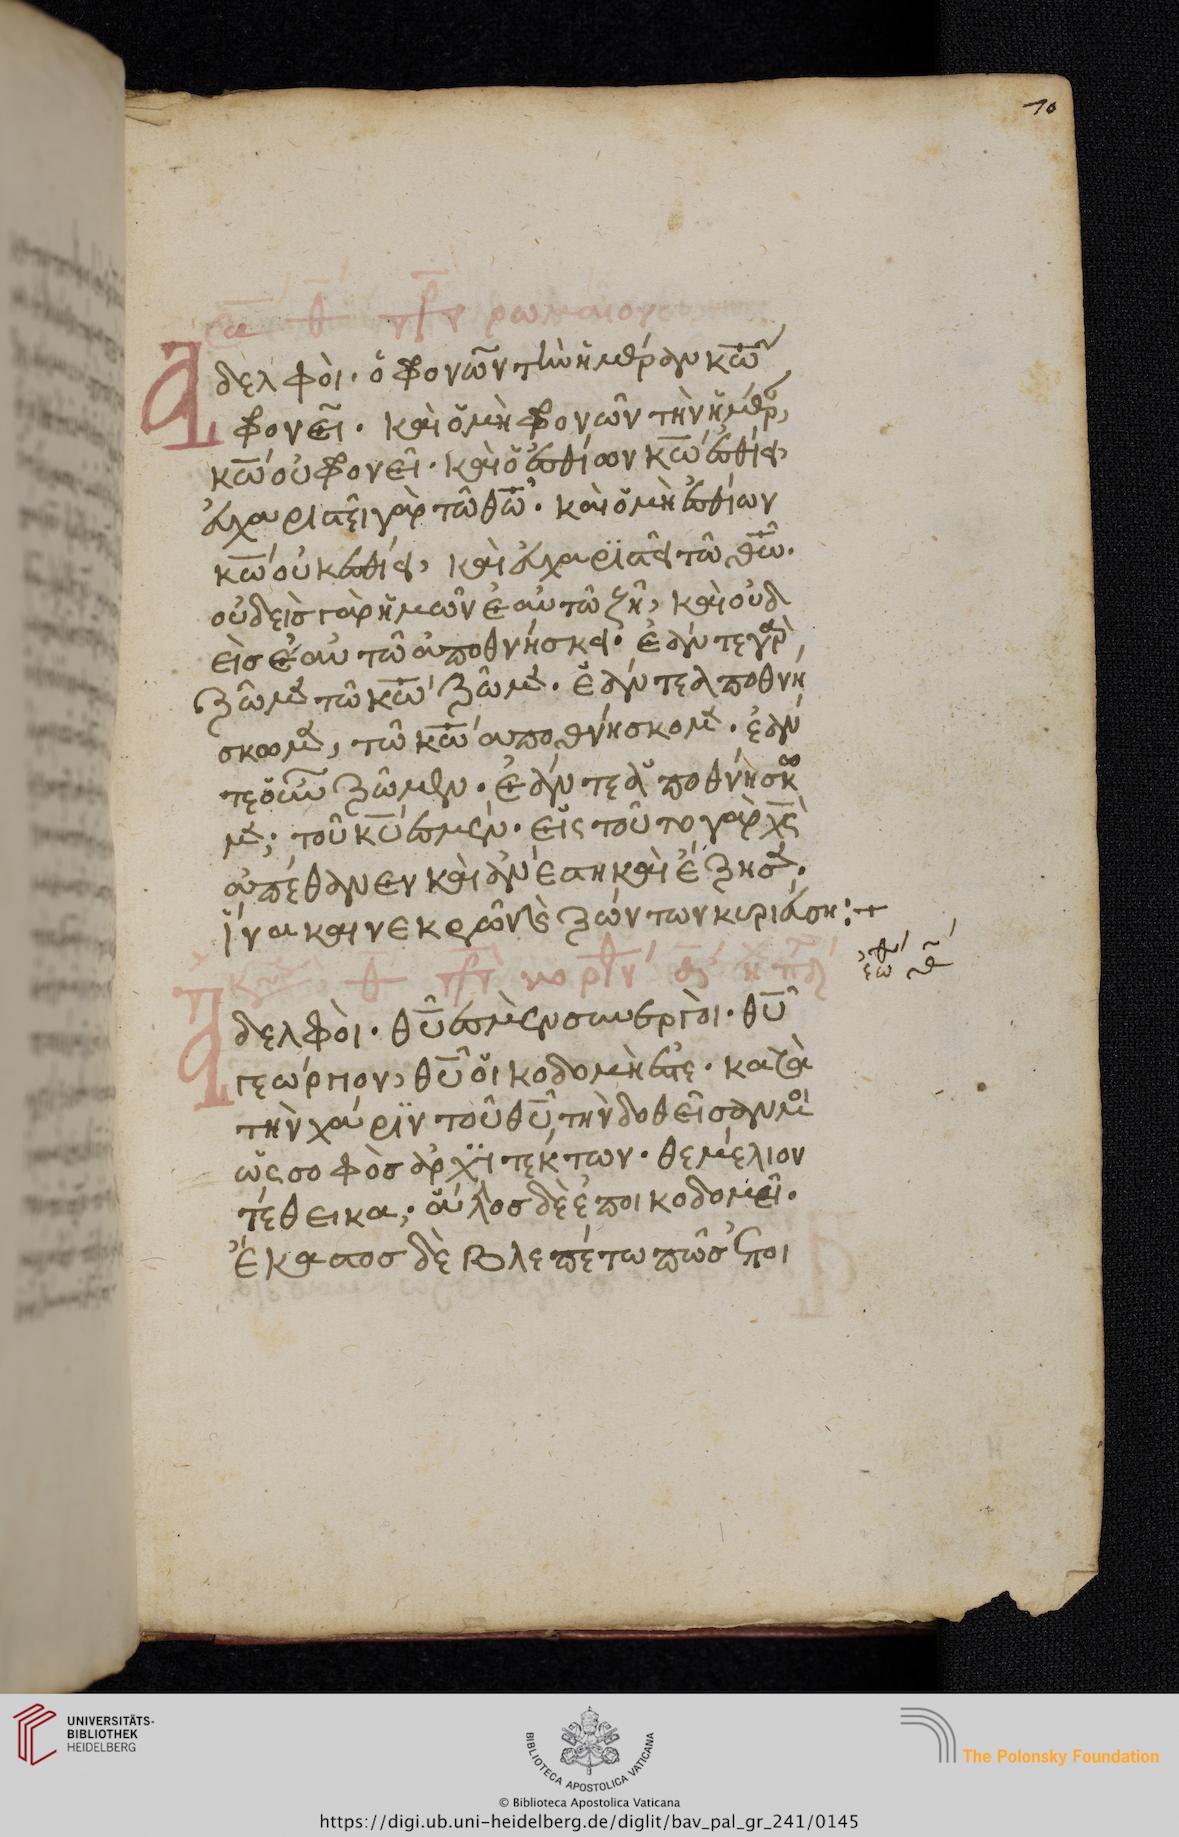 70
ρωμαίους
Αδελφοὶ· ὁ φρονῶν τὴν ἡμέραν κω̅
φρονεῖ· καὶ ὁ μὴ φρονῶν τὴν ἡμέρ,
κω̅ οὐ φρονεῖ· καὶ ὁ ἐσθίων κω̅ ἐσθίει,
εὐχαριστεῖ γὰρ τῶ θω̅· καὶ ὁ μὴ ἐσθίων
κω̅ οὐκ ἐσθίει, καὶ εὐχαριστεῖ τῶ θω̅·
οὐδεὶς γὰρ ἡμῶν ἑαυτῶ ζῆ, καὶ οὐδ
εὶς ἑαυτῶ ἀποθνήσκει· ἐάν τε γὰρ,
ζῶμεν τῶ κω̅ ζῶμεν· ἐάν τε ἀποθνή
σκωμεν, τῶ κω̅ ἀποθνήσκομεν· ἐάν
τε οὖν ζῶμεν· ἐάν τε ἀποθνήσκω
μεν, τοῦ κυ̅ ἐσμέν· εἰς τοῦτο γὰρ χς̅
ἀπέθανεν καὶ ἀνέστη καὶ ἔζησεν·
ἵνα καὶ νεκρῶν καὶ ζώντων κυριεύση:+
Αδελφοὶ· θυ̅ ἐσμὲν συνεργοὶ· θυ̅
γεώργιον, θυ̅ οἰκοδομὴ ἐστε· κατὰ
τὴν χάριν τοῦ θυ̅ τὴν δοθεῖσαν μοι
ὡς σοφὸς ἀρχιτέκτων· θεμέλιον
τέθεικα, ἄλλος δὲ ἐποικοδομεῖ·
Ἕκαστος δὲ βλεπέτω πῶς ἐποι
UNIVERSITÄTS-
BIBLIOTHEK
HEIDELBERG
BIBLIOTECA APOSTOLICA VATICANA
The Polonsky Foundation
© Biblioteca Apostolica Vaticana
https://digi.ub.uni-heidelberg.de/diglit/bav_pal_gr_241/0145